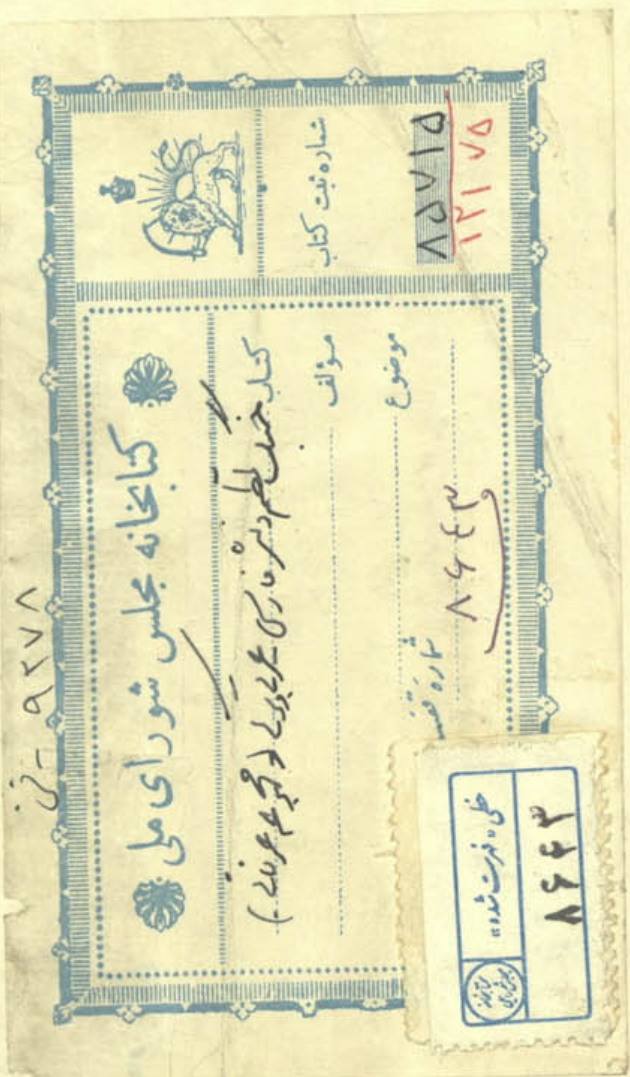 ۹۲۷۸ - ف
کتابخانه مجلس شورای ملی
کتاب
نظم و نثر فارسی
مؤلف
موضوع
شماره قفسه
۸۶۴۳
شماره ثبت کتاب
۸۵۷۱۵
۱۲۱۷۵
خطی «فهرست شده»
۸۶۴۳